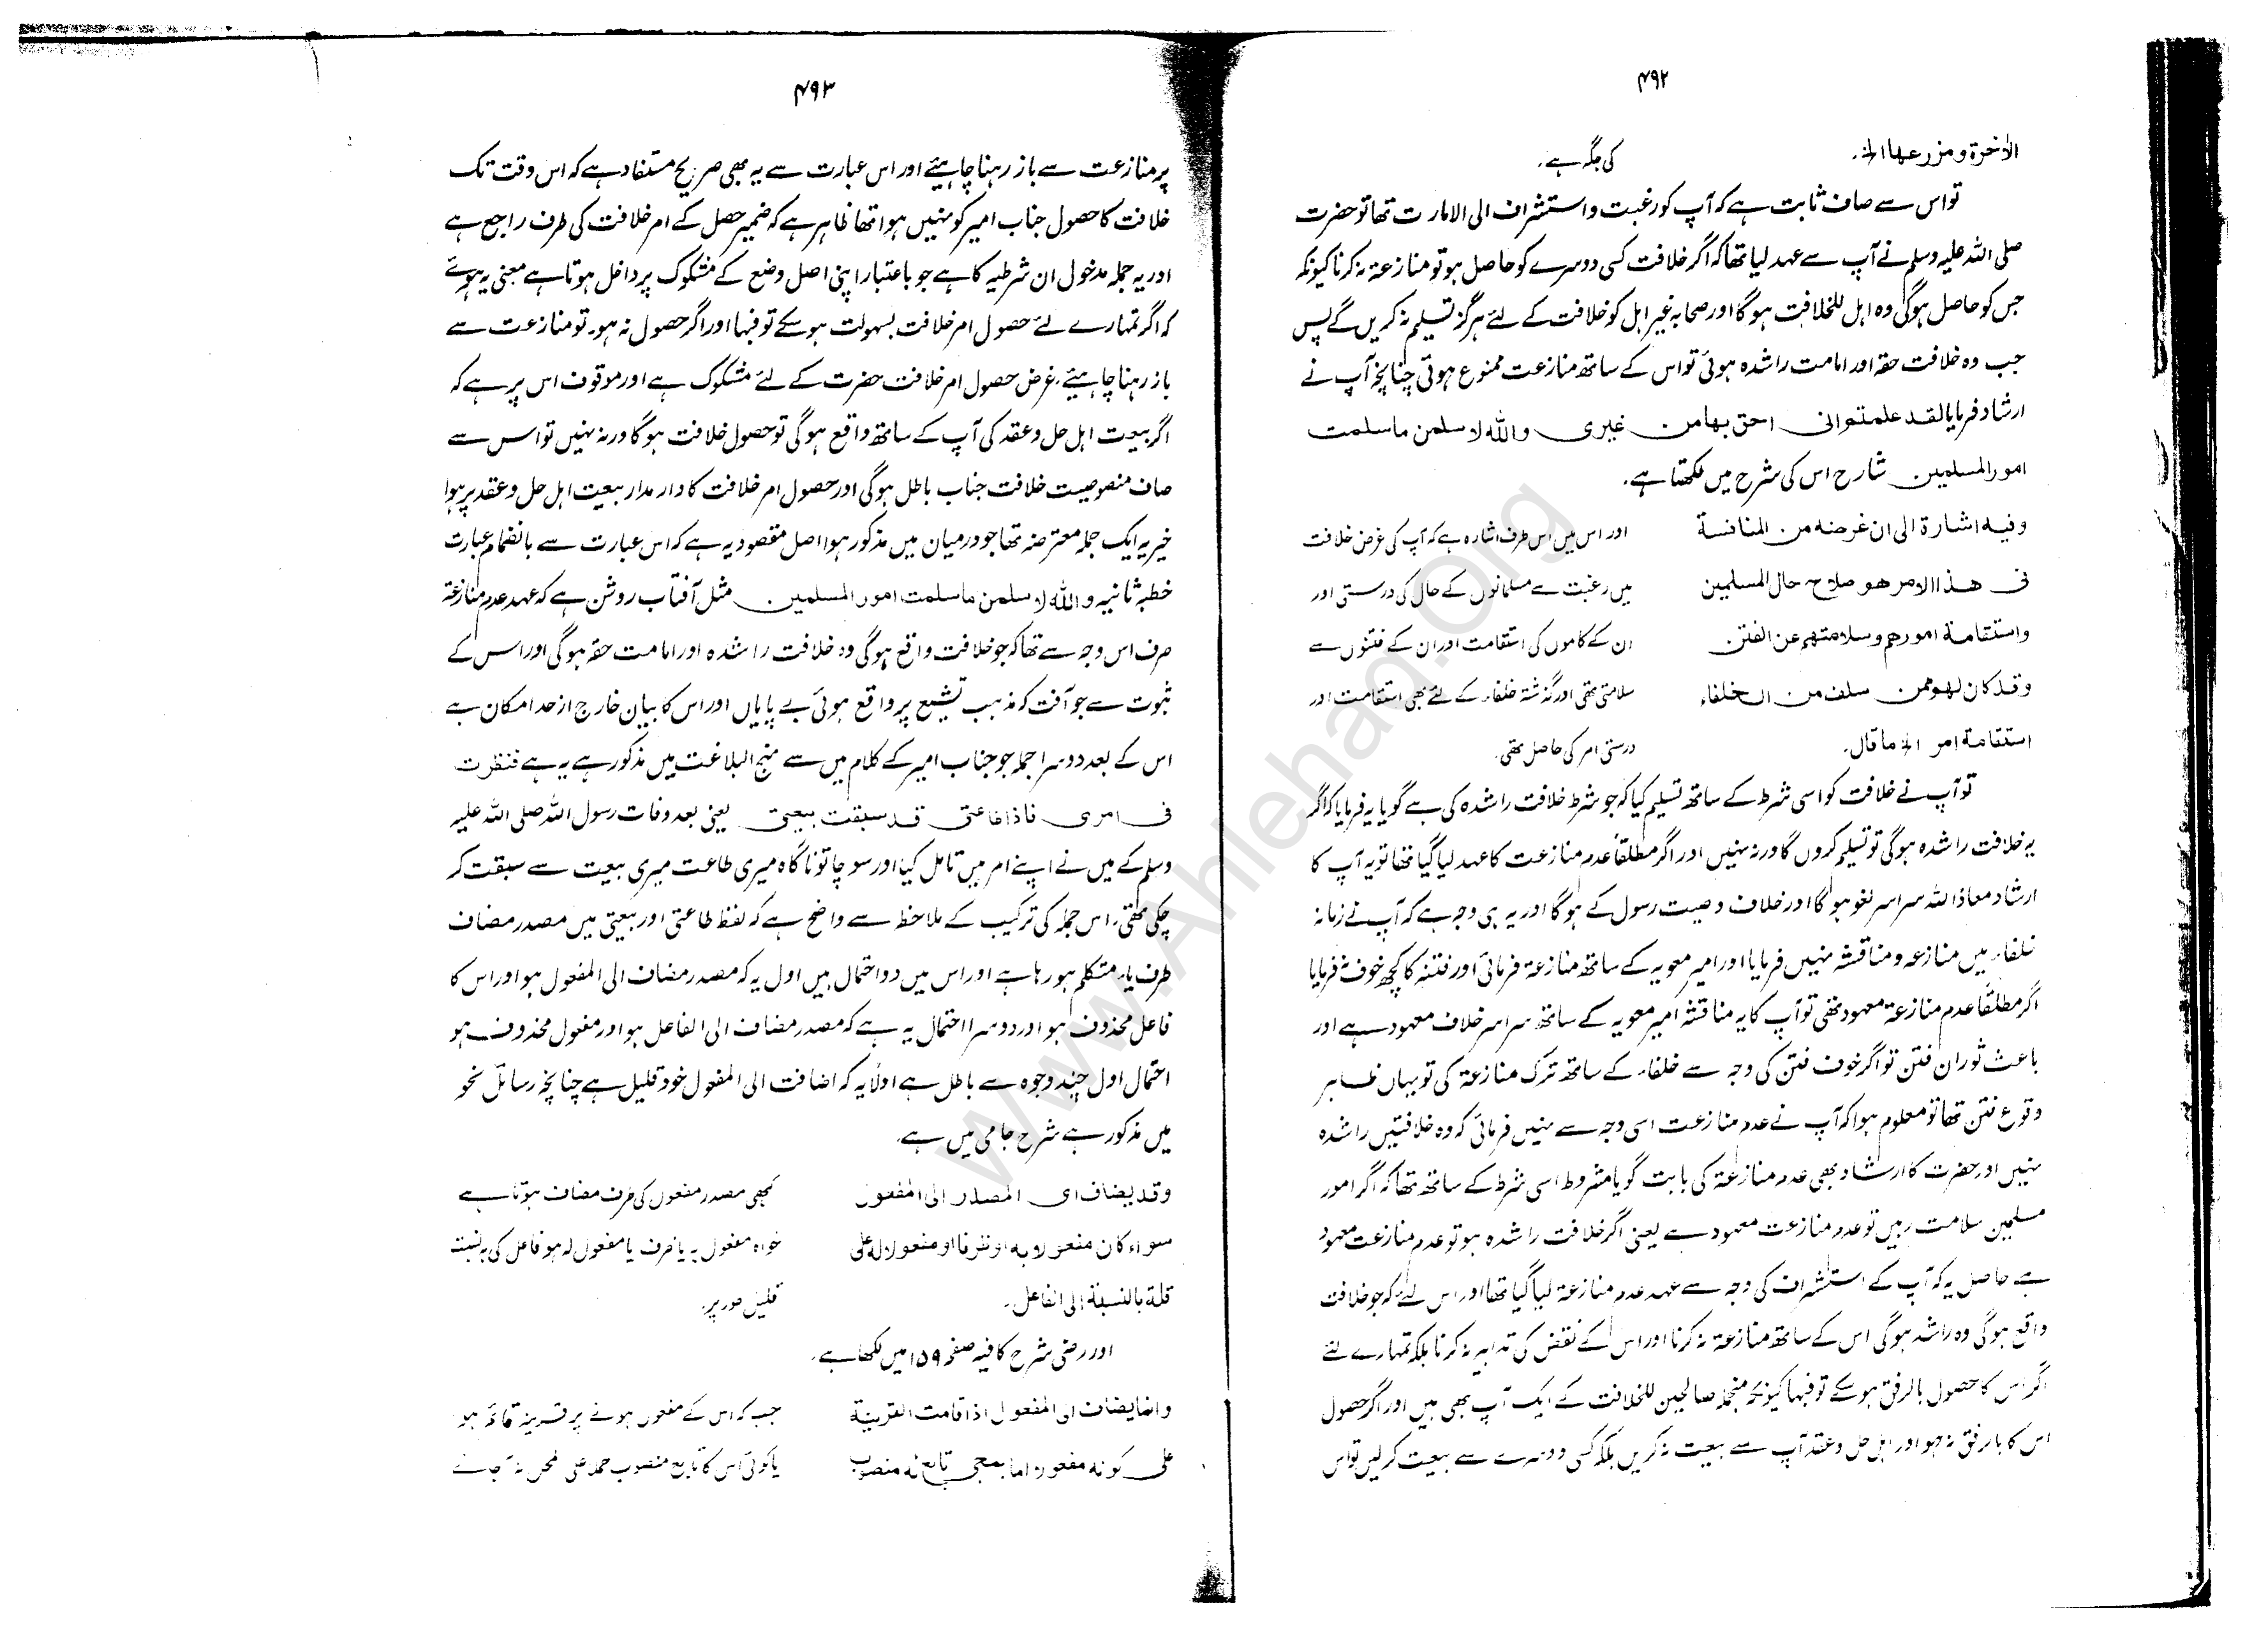 ۴۹۲
الاٰخرة ومزرعها الخ. کی جگہ ہے.
تو اس سے صاف ثابت ہے کہ آپ کو رغبت و استشراف الی الامارت تھا تو حضرت
صلی اللہ علیہ وسلم نے آپ سے عہد لیا تھا کہ اگر خلافت کسی دوسرے کو حاصل ہو تو منازعۃ نہ کرنا کیونکہ
جس کو حاصل ہوگی وہ اہل للخلافت ہوگا اور صحابہ غیر اہل کو خلافت کے لئے ہرگز تسلیم نہ کریں گے پس
جب وہ خلافت حقہ اور امامت راشدہ ہوئی تو اس کے ساتھ منازعت ممنوع ہوئی چنانچہ آپ نے
ارشاد فرمایا لقد علمتم انی احق بها من غیری والله لاسلمن ماسلمت
امور المسلمین شارح اس کی شرح میں لکھتا ہے.
وفیه اشارة الی ان غرضه من المنافسة اور اس میں اس طرف اشارہ ہے کہ آپ کی غرض خلافت
فی هذا الامر هو صلاح حال المسلمین میں رغبت سے مسلمانوں کے حال کی درستی اور
واستقامة امورهم وسلامتهم عن الفتن ان کے کاموں کی استقامت اور ان کے فتنوں سے
وقد کان لهم ممن سلف من الخلفاء سلامتی تھی اور گذشتہ خلفاء کے لئے بھی استقامت اور
استقامة امر الخ ما قال. درستی امر کی حاصل تھی.
تو آپ نے خلافت کو اسی شرط کے ساتھ تسلیم کیا کہ جو شرط خلافت راشدہ کی ہے گویا یہ فرمایا کہ اگر
یہ خلافت راشدہ ہوگی تو تسلیم کروں گا ورنہ نہیں اور اگر مطلقاً عدم منازعت کا عہد لیا گیا تھا تو یہ آپ کا
ارشاد معاذ اللہ سراسر لغو ہوگا اور خلاف وصیت رسول کے ہوگا اور یہ ہی وجہ ہے کہ آپ نے زمانہ
خلفاء میں منازعہ و مناقشہ نہیں فرمایا اور امیر معویہ کے ساتھ منازعۃ فرمائی اور فتنہ کا کچھ خوف نہ فرمایا
اگر مطلقاً عدم منازعۃ معہود تھی تو آپ کا یہ مناقشہ امیر معویہ کے ساتھ سراسر خلاف معہود ہے اور
باعث ثوران فتن تو اگر خوف فتن کی وجہ سے خلفاء کے ساتھ ترک منازعۃ کی تو یہاں ظاہر
وقوع فتن تھا تو معلوم ہوا کہ آپ نے عدم منازعت اسی وجہ سے نہیں فرمائی کہ وہ خلافتیں راشدہ
نہیں اور حضرت کا ارشاد بھی عدم منازعۃ کی بابت گویا مشروط اسی شرط کے ساتھ تھا کہ اگر امور
مسلمین سلامت رہیں تو عدم منازعت معہود ہے یعنی اگر خلافت راشدہ ہو تو عدم منازعت معہود
ہے حاصل یہ کہ آپ کے استشراف کی وجہ سے عہد عدم منازعۃ لیا گیا تھا اور اس لئے کہ جو خلافت
واقع ہوگی وہ راشد ہوگی اس کے ساتھ منازعۃ نہ کرنا اور اس کے نقض کی تدابیر نہ کرنا بلکہ تمہارے لئے
اگر اس کا حصول بالرفق ہو سکے تو فبہا کیونکہ منجملہ صالحین للخلافت کے ایک آپ بھی ہیں اور اگر حصول
اس کا بارفق نہ ہو اور اہل حل و عقد آپ سے بیعت نہ کریں بلکہ کسی دوسرے سے بیعت کر لیں تو اس
۴۹۳
پر منازعت سے باز رہنا چاہیئے اور اس عبارت سے یہ بھی صریح مستفاد ہے کہ اس وقت تک
خلافت کا حصول جناب امیر کو نہیں ہوا تھا ظاہر ہے کہ ضمیر حصل کے امر خلافت کی طرف راجع ہے
اور یہ جملہ مدخول ان شرطیہ کا ہے جو باعتبار اپنی اصل وضع کے مشکوک پر داخل ہوتا ہے معنی یہ ہوئے
کہ اگر تمہارے لئے حصول امر خلافت بسہولت ہو سکے تو فبہا اور اگر حصول نہ ہو. تو منازعت سے
باز رہنا چاہیئے، غرض حصول امر خلافت حضرت کے لئے مشکوک ہے اور موقوف اس پر ہے کہ
اگر بیعت اہل حل و عقد کی آپ کے ساتھ واقع ہوگی تو حصول خلافت ہوگا ورنہ نہیں تو اس سے
صاف منصوصیت خلافت جناب باطل ہوگی اور حصول امر خلافت کا دار مدار بیعت اہل حل و عقد پر ہوا
خیر یہ ایک جملہ معترضہ تھا جو درمیان میں مذکور ہوا اصل مقصود یہ ہے کہ اس عبارت سے بانضمام عبارت
خطبہ ثانیہ والله لاسلمن ماسلمت امور المسلمین مثل آفتاب روشن ہے کہ عہد عدم منازعۃ
صرف اس وجہ سے تھا کہ جو خلافت واقع ہوگی وہ خلافت راشدہ اور امامت حقہ ہوگی اور اس کے
ثبوت سے جو آفت کہ مذہب تشیع پر واقع ہوئی بے پایاں اور اس کا بیان خارج از حد امکان ہے
اس کے بعد دوسرا جملہ جو جناب امیر کے کلام میں سے نہج البلاغت میں مذکور ہے یہ ہے فنظرت
فی امری فاذا طاعتی قد سبقت بیعتی یعنی بعد وفات رسول اللہ صلی اللہ علیہ
وسلم کے میں نے اپنے امر میں تامل کیا اور سوچا تو ناگاہ میری طاعت میری بیعت سے سبقت کر
چکی تھی، اس جملہ کی ترکیب کے ملاحظہ سے واضح ہے کہ لفظ طاعتی اور بیعتی میں مصدر مضاف
طرف یاء متکلم ہو رہا ہے اور اس میں دو احتمال ہیں اول یہ کہ مصدر مضاف الی المفعول ہو اور اس کا
فاعل محذوف ہو اور دوسرا احتمال یہ ہے کہ مصدر مضاف الی الفاعل ہو اور مفعول محذوف ہو
احتمال اول چند وجوہ سے باطل ہے اولاً یہ کہ اضافت الی المفعول خود قلیل ہے چنانچہ رسائل نحو
میں مذکور ہے شرح جامی میں ہے.
وقد یضاف ای المصدر الی المفعول کبھی مصدر مفعول کی طرف مضاف ہوتا ہے
سواء کان مفعولا به او ظرفا او مفعولا له علی خواہ مفعول بہ یا ظرف یا مفعول لہ ہو فاعل کی بہ نسبت
قلة بالنسبة الی الفاعل. قلیل طور پر.
اور رضی شرح کافیہ صفحہ ۱۵۹ میں لکھا ہے.
وانما یضاف الی المفعول اذا قامت القرینة جب کہ اس کے مفعول ہونے پر قرینہ قائم ہو
علی کونه مفعولا اما بمجی تابع له منصوب یا کوئی اس کا تابع منصوب حملا علی المحل نہ آ جائے